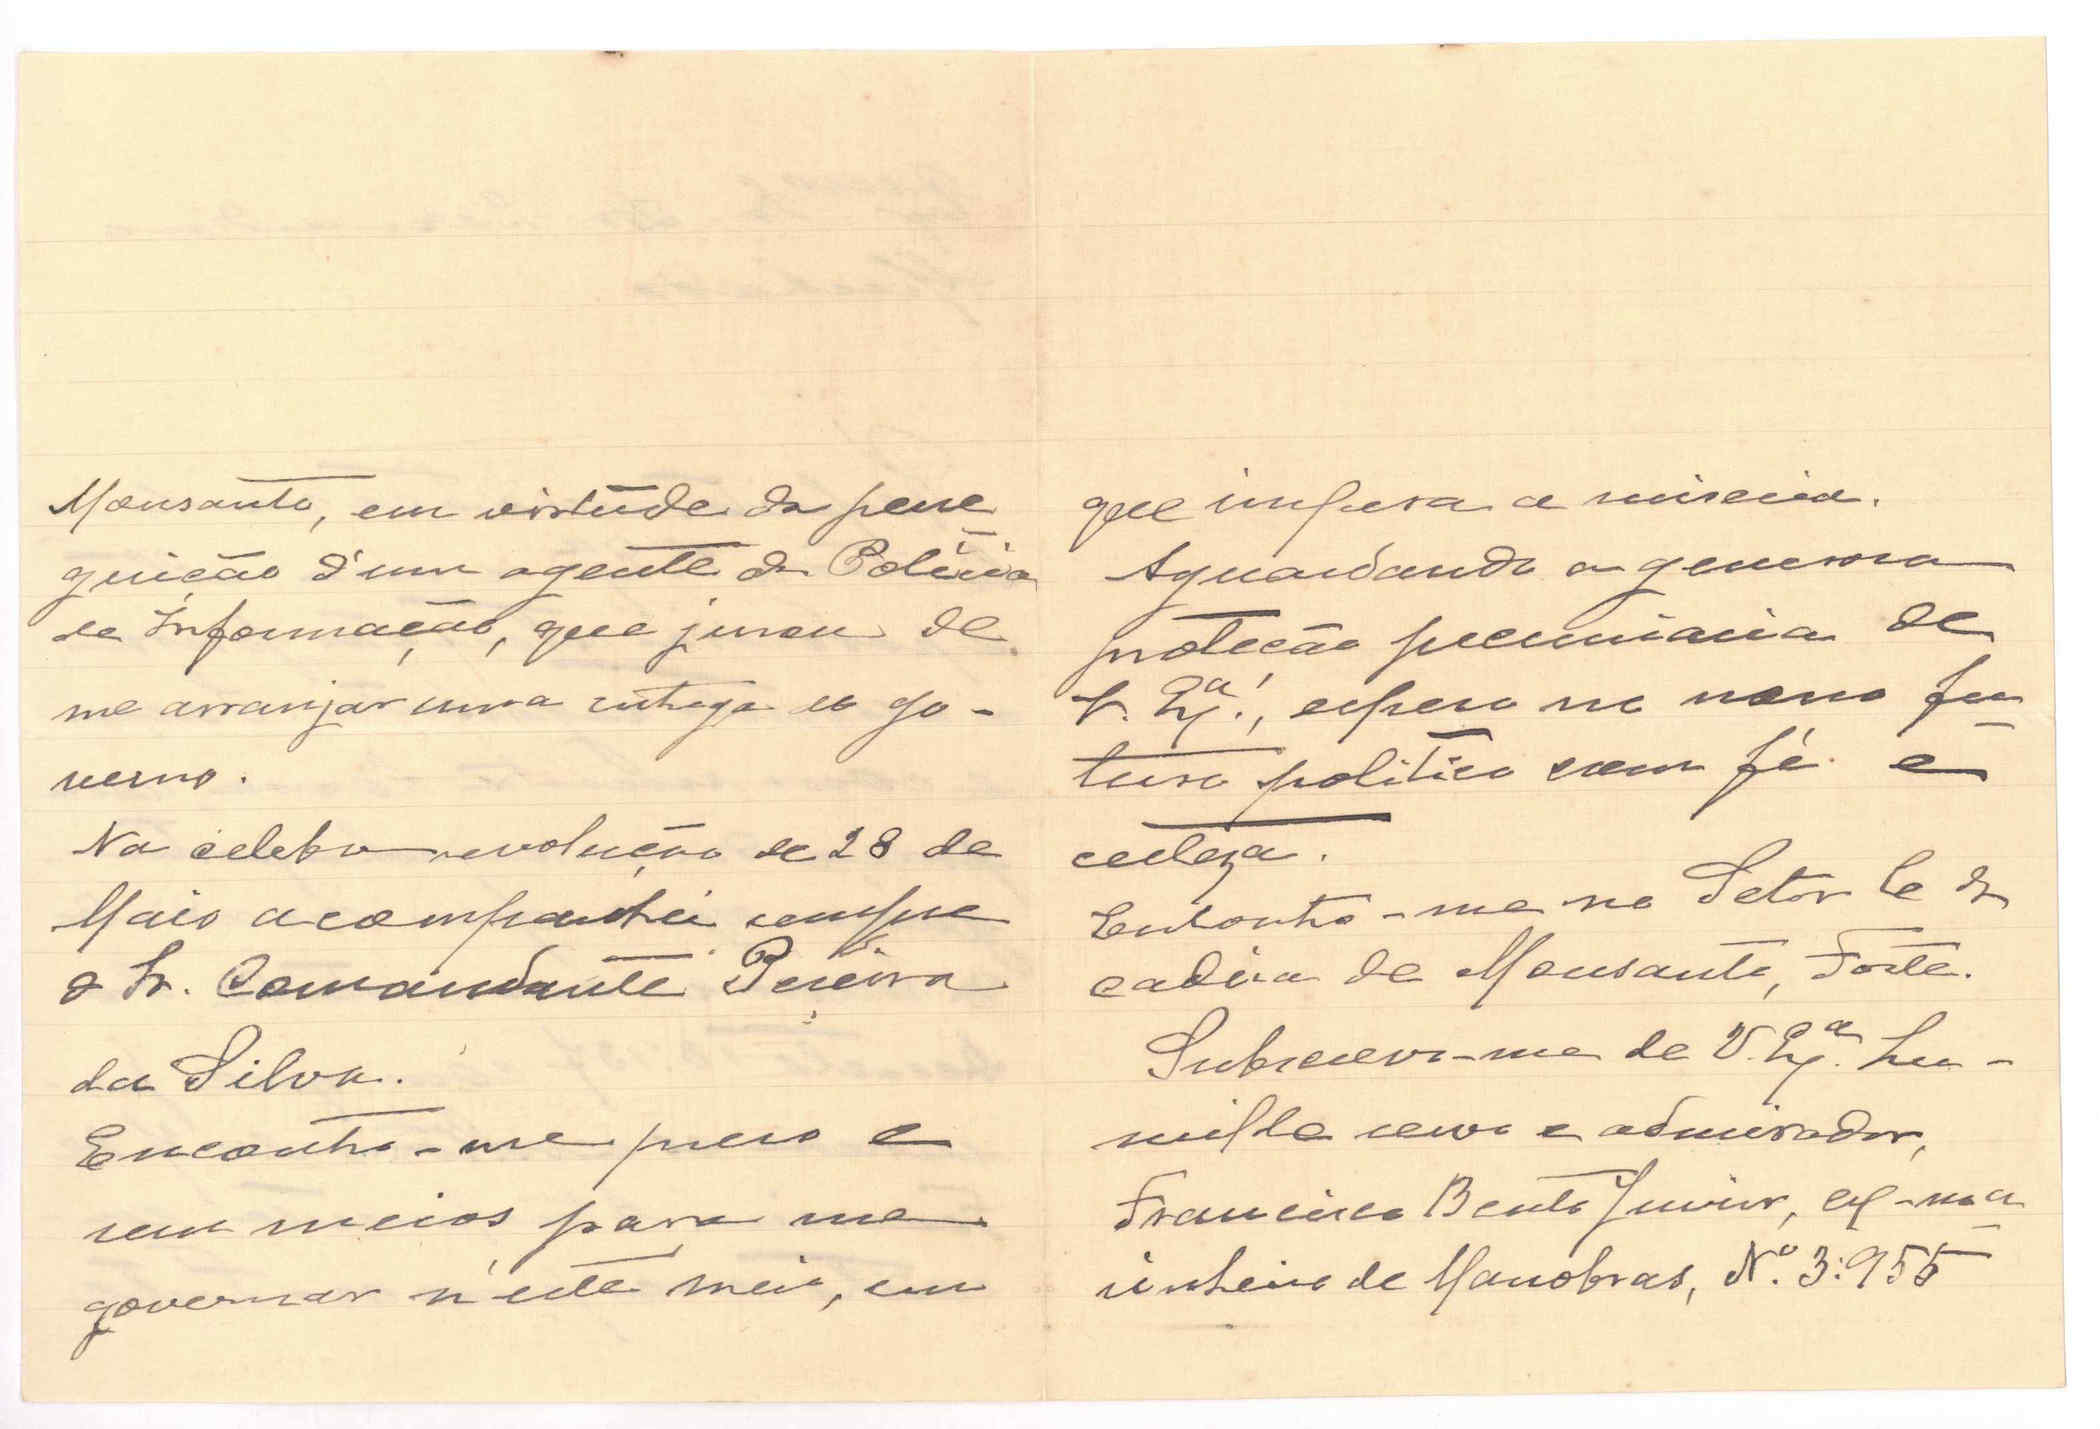 Monsanto, em virtude da perse
guição d'um agente da Policia
de Informação, que jurou de
me arranjar uma entrega ao go-
verno.
Na celebre revolução de 28 de
Maio acompanhei sempre
o Sr. Comandante Pereira
da Silva.
Encontro-me preso e
sem meios para me
governar n'este meio, em
que impera a miseria.
Aguardando a generosa
proteção pecuniaria de
V. Exª., espero no novo fu
turo politico com fé e
certeza.
Encontro-me no Setor C da
cadeia de Monsanto, Forte.
Subscrevo-me de V. Exª. hu-
milde servo e admirador,
Francisco Bento Junior, ex-ma
rinheiro de Manobras, Nº. 3:955